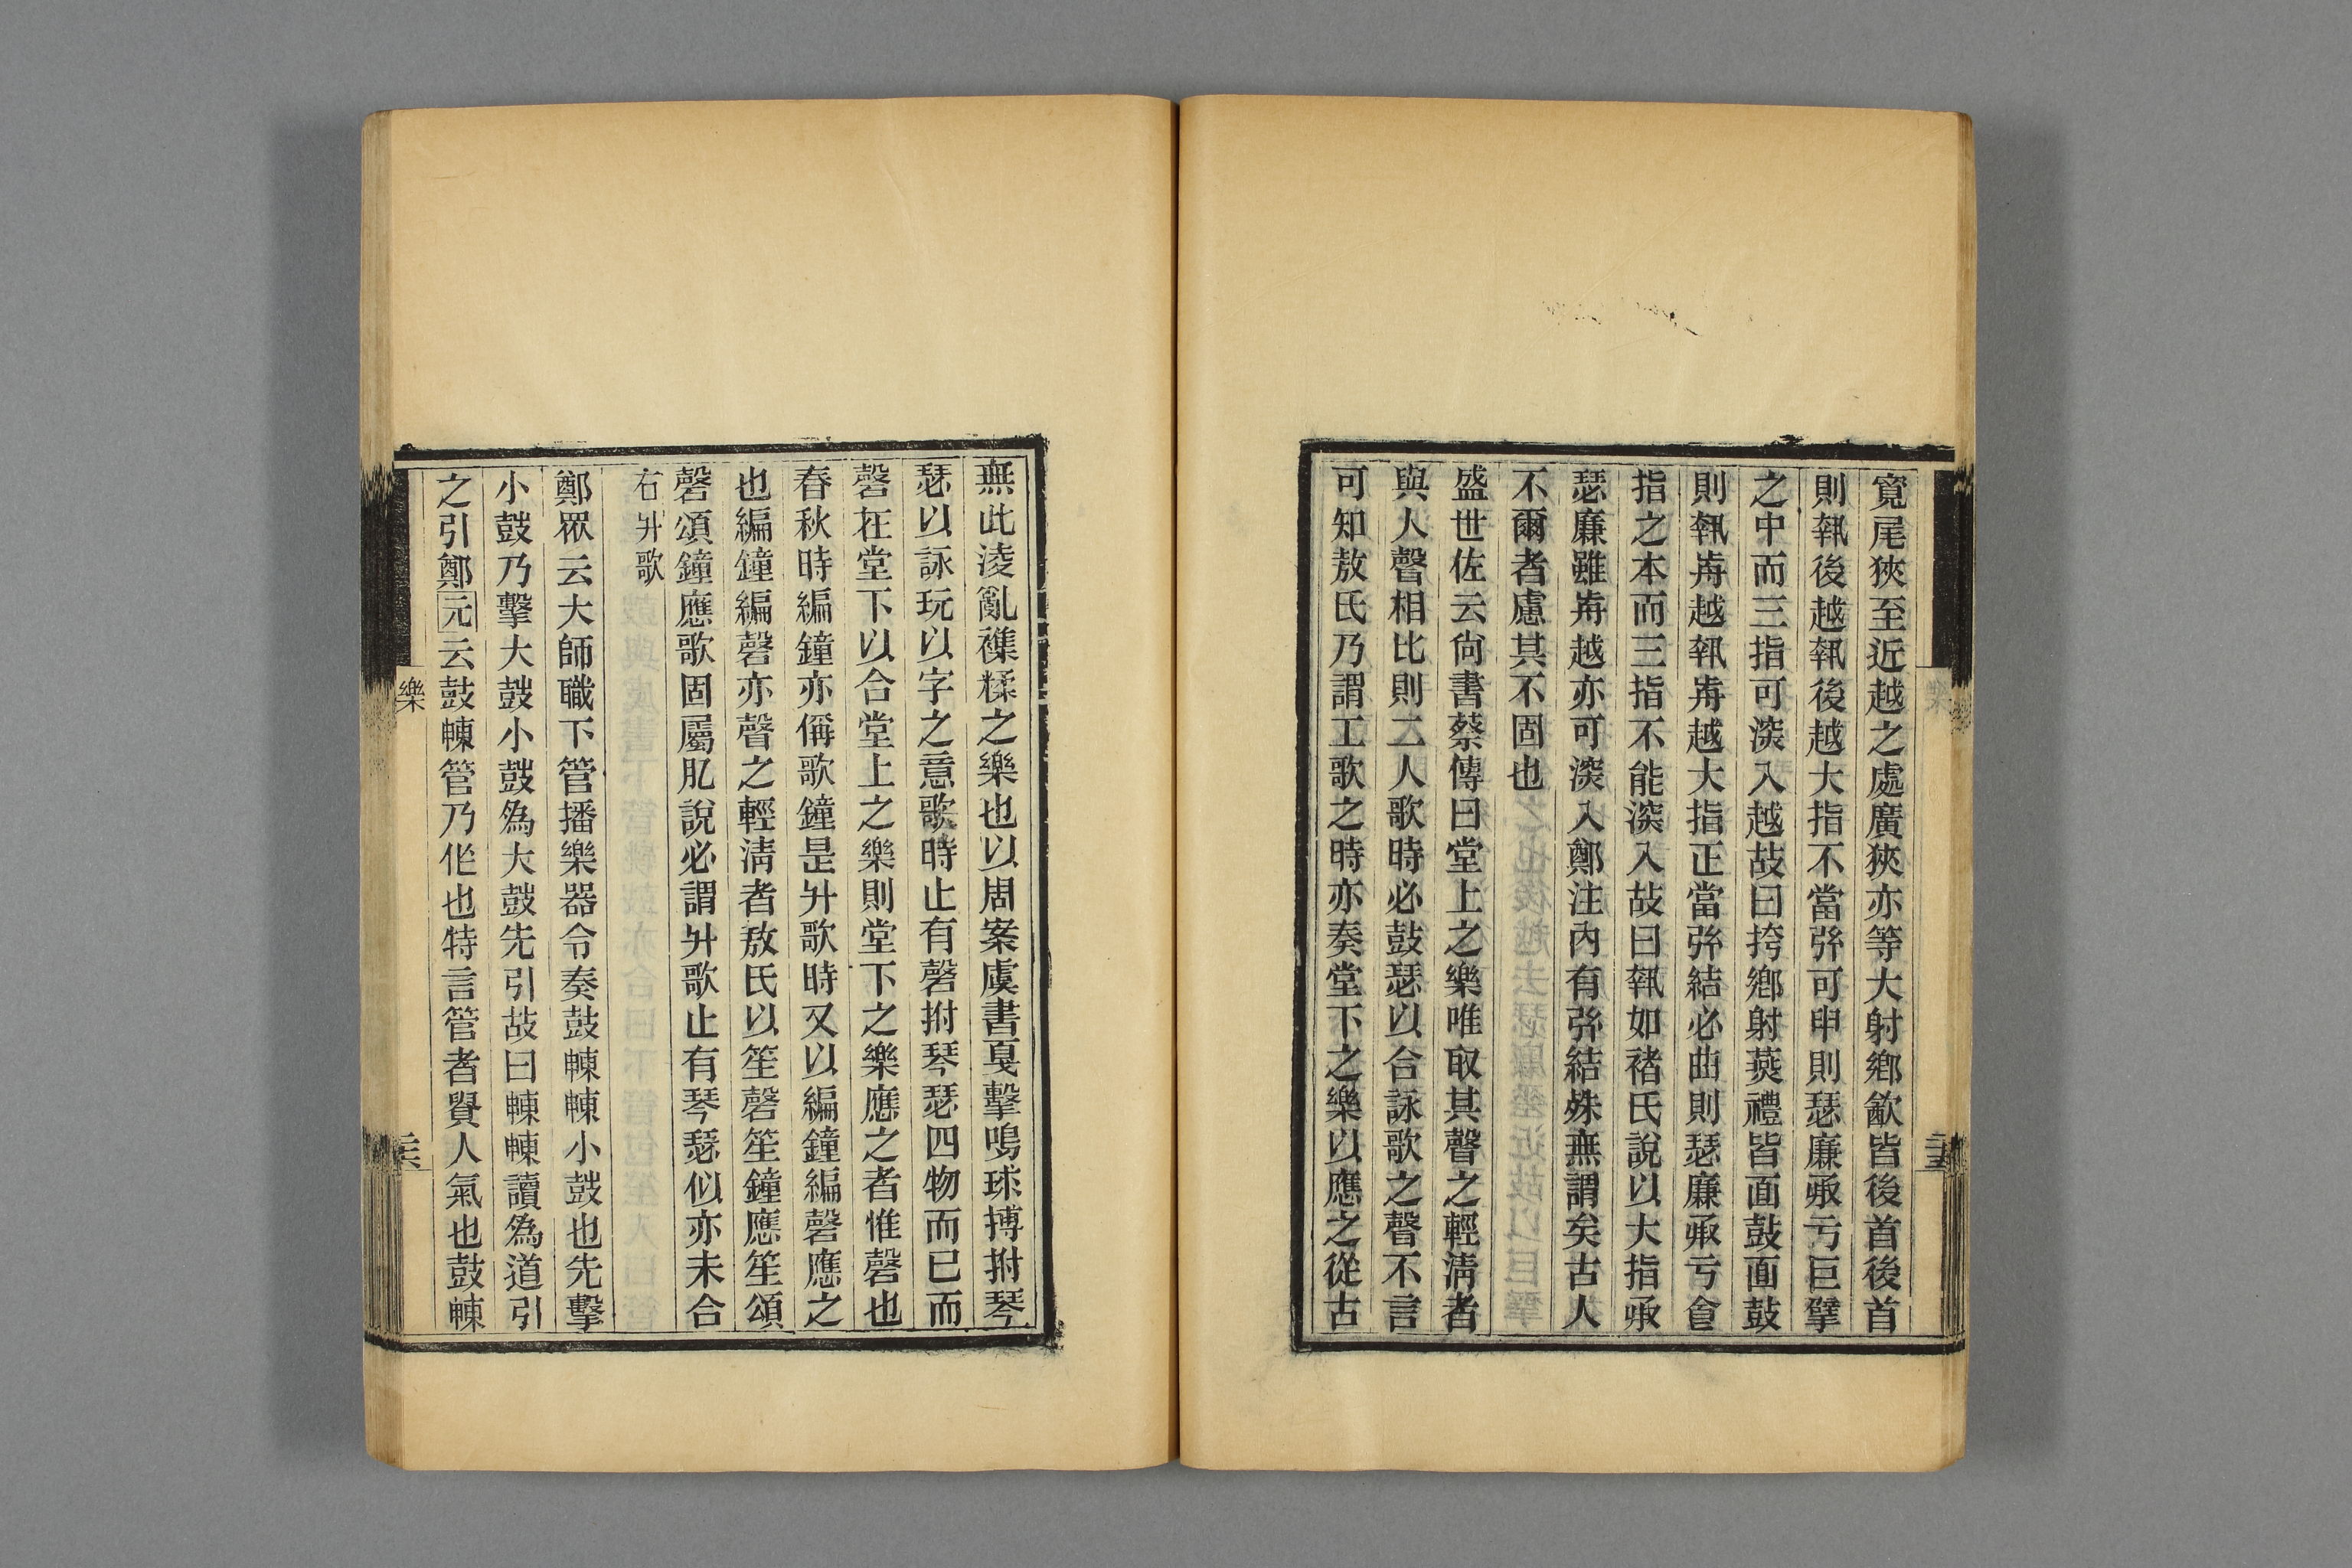 寬尾狹至近越之處廣狹亦等大射鄉飮皆後首後首
則執後越執後越大指不當弦可申則瑟廉承于巨擘
之中而三指可深入越故曰挎鄉射燕禮皆面鼓面鼓
則執歬越執歬越大指正當弦結必曲則瑟廉承于食
指之本而三指不能深入故曰執如褚氏說以大指承
瑟廉雖歬越亦可深入鄭注內有弦結殊無謂矣古人
不爾者慮其不固也
盛世佐云尙書蔡傳曰堂上之樂唯取其聲之輕淸者
與人聲相比則工人歌時必鼓瑟以合詠歌之聲不言
可知敖氏乃謂工歌之時亦奏堂下之樂以應之從古
樂
無此淩亂襍糅之樂也以周案虞書戛擊鳴球搏拊琴
瑟以詠玩以字之意歌時止有磬拊琴瑟四物而已而
磬在堂下以合堂上之樂則堂下之樂應之者惟磬也
春秋時編鐘亦偁歌鐘是升歌時又以編鐘編磬應之
也編鐘編磬亦聲之輕淸者敖氏以笙磬笙鐘應笙頌
磬頌鐘應歌固屬肊說必謂升歌止有琴瑟佀亦未合
右升歌
鄭眾云大師職下管播樂器令奏鼓朄朄小鼓也先擊
小鼓乃擊大鼓小鼓爲大鼓先引故曰朄朄讀爲道引
之引鄭元云鼓朄管乃作也特言管者貴人氣也鼓朄
樂